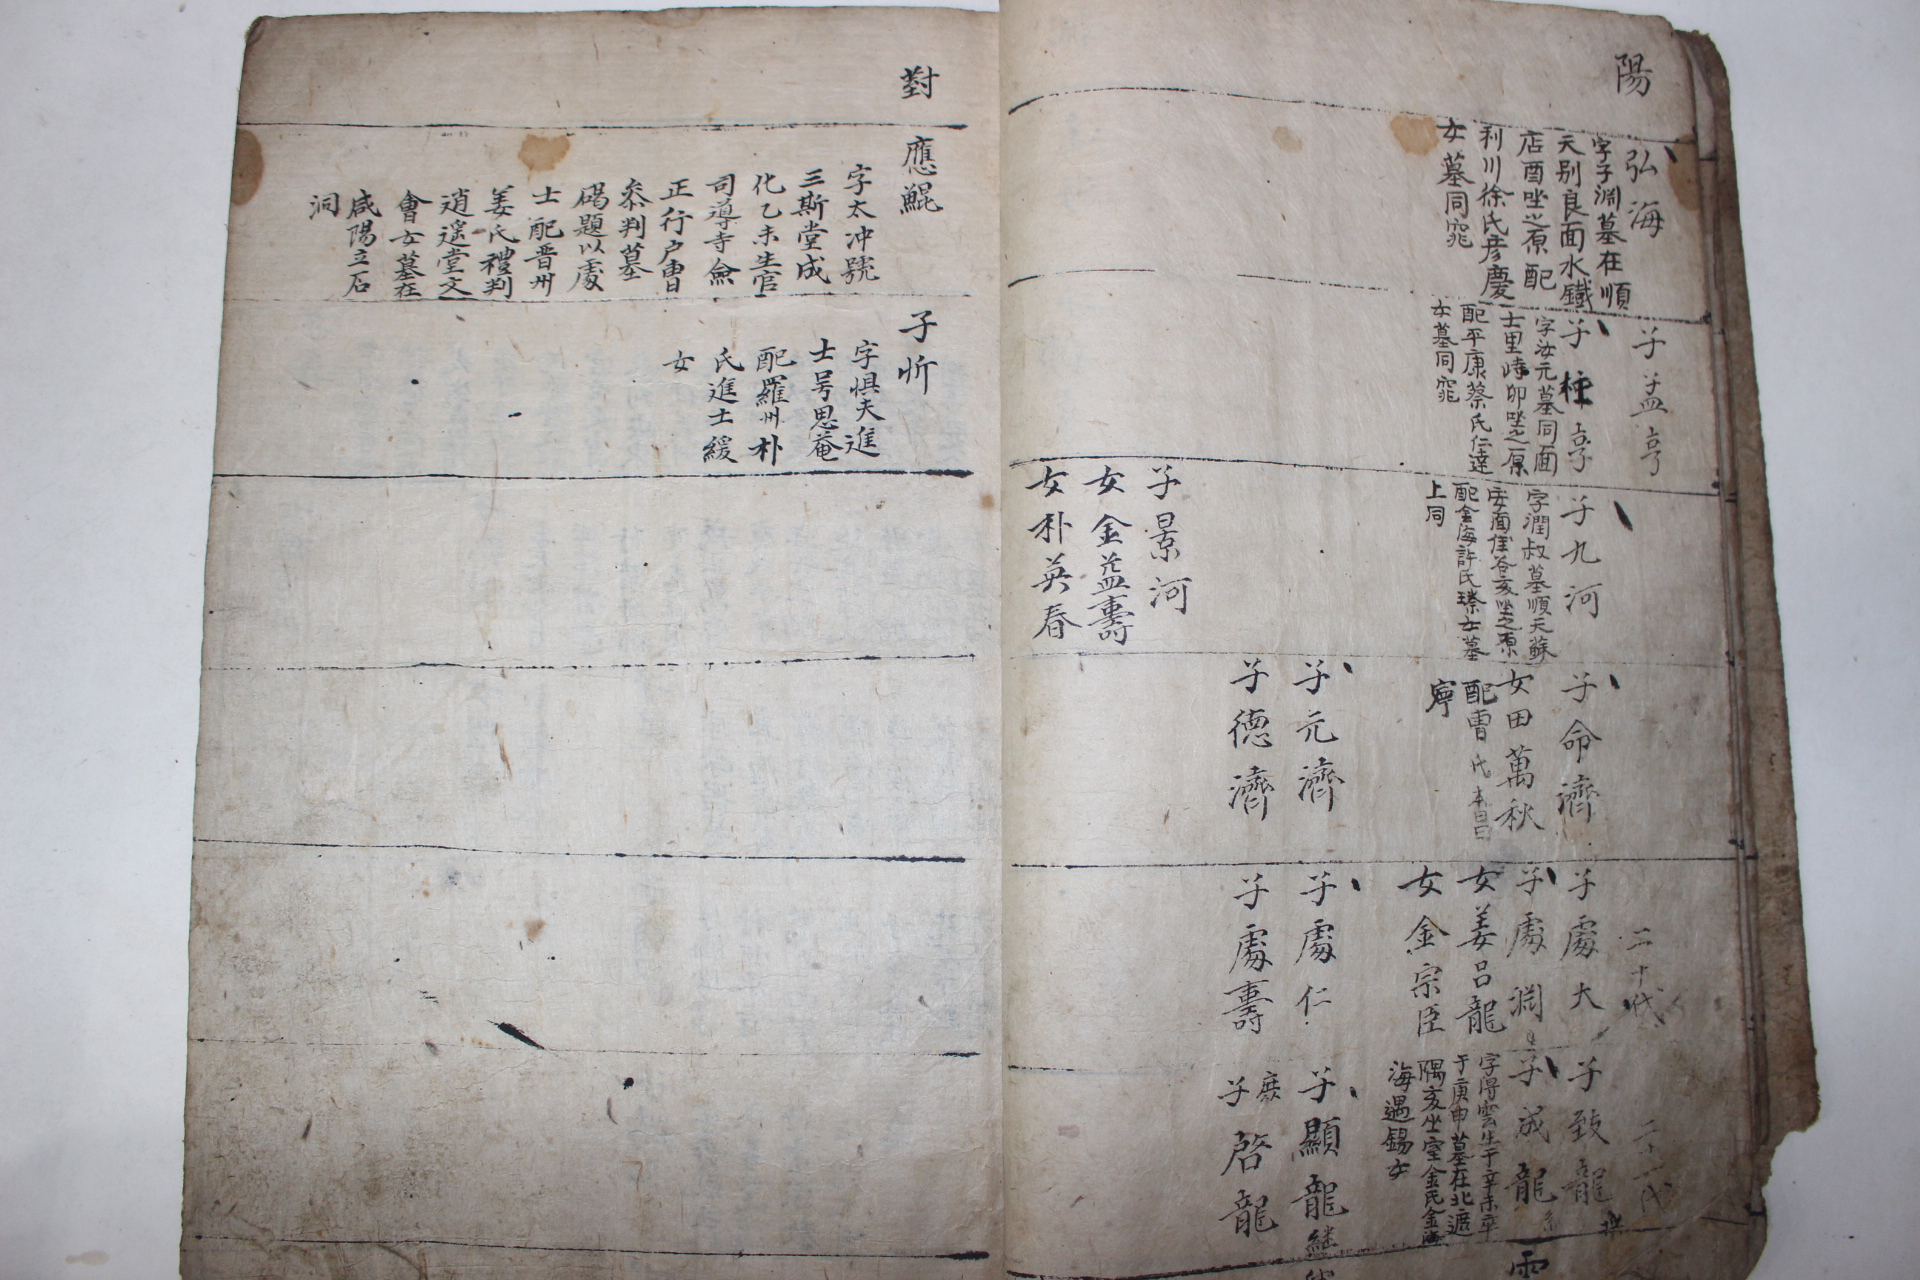 陽
弘海
字子淵墓在順
天別良面水鐵
店酉坐之原配
利川徐氏彦慶
女墓同窕
子孟亨
子柱亨
字汝元墓同面
士里峙卯坐之原
配平康蔡氏仁達
女墓同窕
子九河
字潤叔墓順天蘇
安面 谷亥坐之原
配金海許氏璨女墓
上同
子景河
女金益壽
女朴英春
子命濟
女田萬秋
配曺氏本昌
寧
子元濟
子德濟
二十代
子處大
子處淵
女姜呂龍
女金宗臣
子處仁
子處壽
二十一代
子致龍
子成龍
字得雲生于辛未卒
于庚申墓在北遮
隅亥坐室金氏金海
海遇錫女
子顯龍継
庶
子啓龍
對
應鯤
字太冲號
三斯堂成
化乙未生官
司導寺僉
正行户曺
叅判墓
碣題以處
士配晋州
姜氏禮判
逍遥堂文
會女墓在
咸陽立石
洞
子忻
字惧夫進
士号思菴
配羅州朴
氏進士緩
女